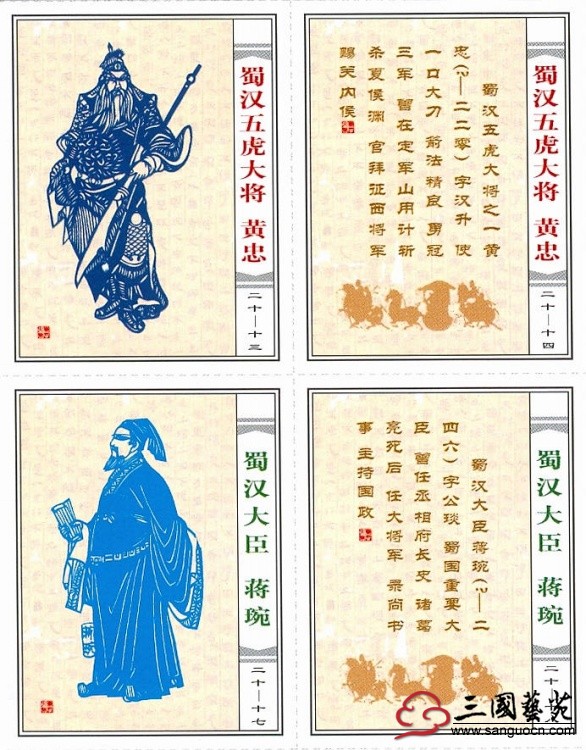 蜀汉五虎大将 黄忠
二十—十三
蜀汉五虎大将 黄忠
二十—十四
蜀汉五虎大将之一黄
忠(?—二二零)字汉升 使
一口大刀 箭法精良 勇冠
三军 曾在定军山用计斩
杀夏侯渊 官拜征西将军
赐关内侯
蜀汉大臣 蒋琬
二十—十七
蜀汉大臣 蒋琬
二十
蜀汉大臣蒋琬(?—二
四六)字公琰 蜀国重要大
臣 曾任丞相府长史 诸葛
亮死后 任大将军 录尚书
事 主持国政
三國藝苑
www.sanguocn.com